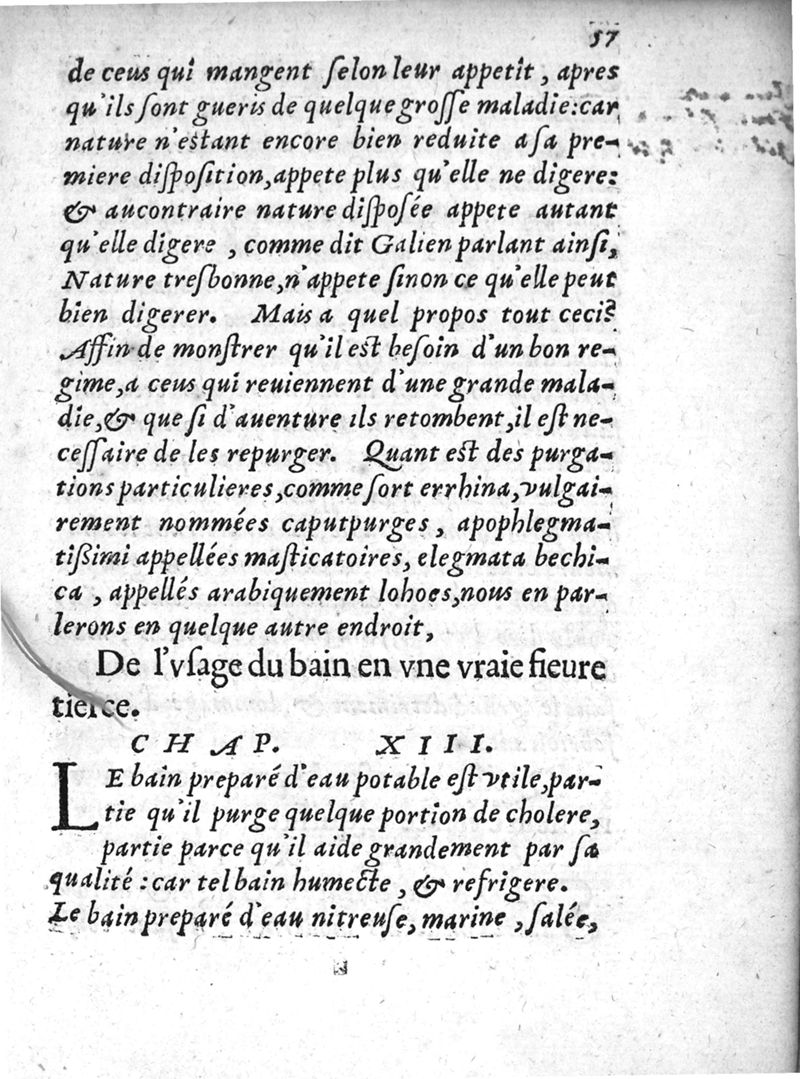 57
de ceus qui mangent ſelon leur appetit, apres
qu'ils ſont gueris de quelque groſſe maladie: car
nature n'eſtant encore bien reduite a ſa pre-
miere diſpoſition, appete plus qu'elle ne digere:
& aucontraire nature diſpoſée appete autant
qu'elle digere , comme dit Galien parlant ainſi,
Nature treſbonne, n'appete ſinon ce qu'elle peut
bien digerer. Mais a quel propos tout ceci?
Affin de monſtrer qu'il eſt beſoin d'un bon re-
gime, a ceus qui reuiennent d'une grande mala-
die, & que ſi d'auenture ils retombent, il eſt ne-
ceſſaire de les repurger. Quant eſt des purga-
tions particulieres, comme ſort errhina, vulgai-
rement nommées caputpurges, apophlegma-
tiſsimi appellées maſticatoires, elegmata bechi-
ca , appellés arabiquement lohoes, nous en par-
lerons en quelque autre endroit,
De l'vſage du bain en vne vraie fieure
tierce.
CHAP. XIII.
LE bain preparé d'eau potable eſt vtile, par-
tie qu'il purge quelque portion de cholere,
partie parce qu'il aide grandement par ſa
qualité : car tel bain humecte, & refrigere.
Le bain preparé d'eau nitreuſe, marine , ſalée,